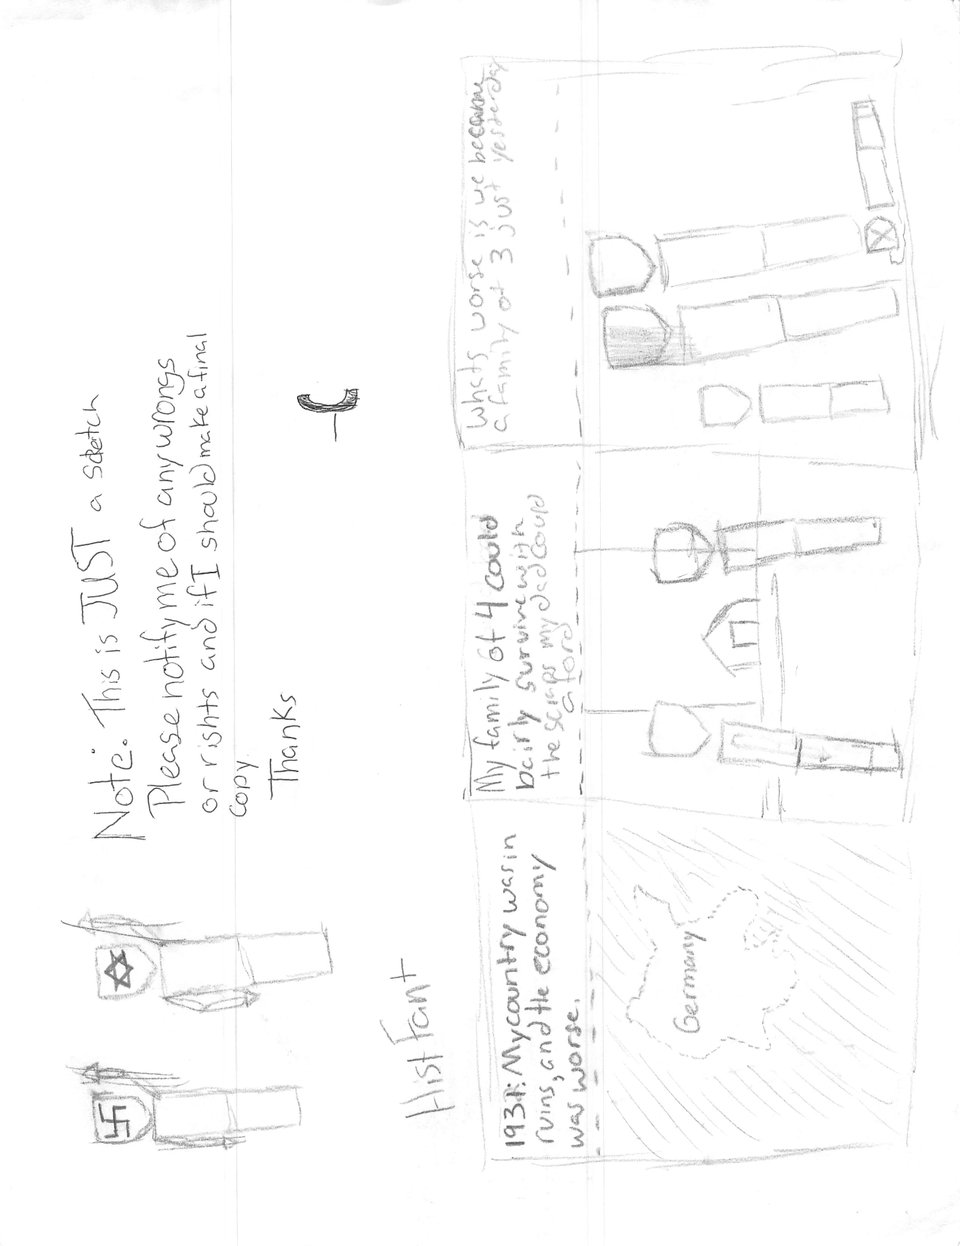 Note: This is JUST a sketch
Please notify me of any wrongs
or rights and if I should make a final
copy
Thanks
Hist Fant
My country was in
ruins, and the economy
was worse.
Germany
My family of 4 could
bairly survive with
the scraps my dad could
aford
Whats worse is we became
a family of 3 just yesterday